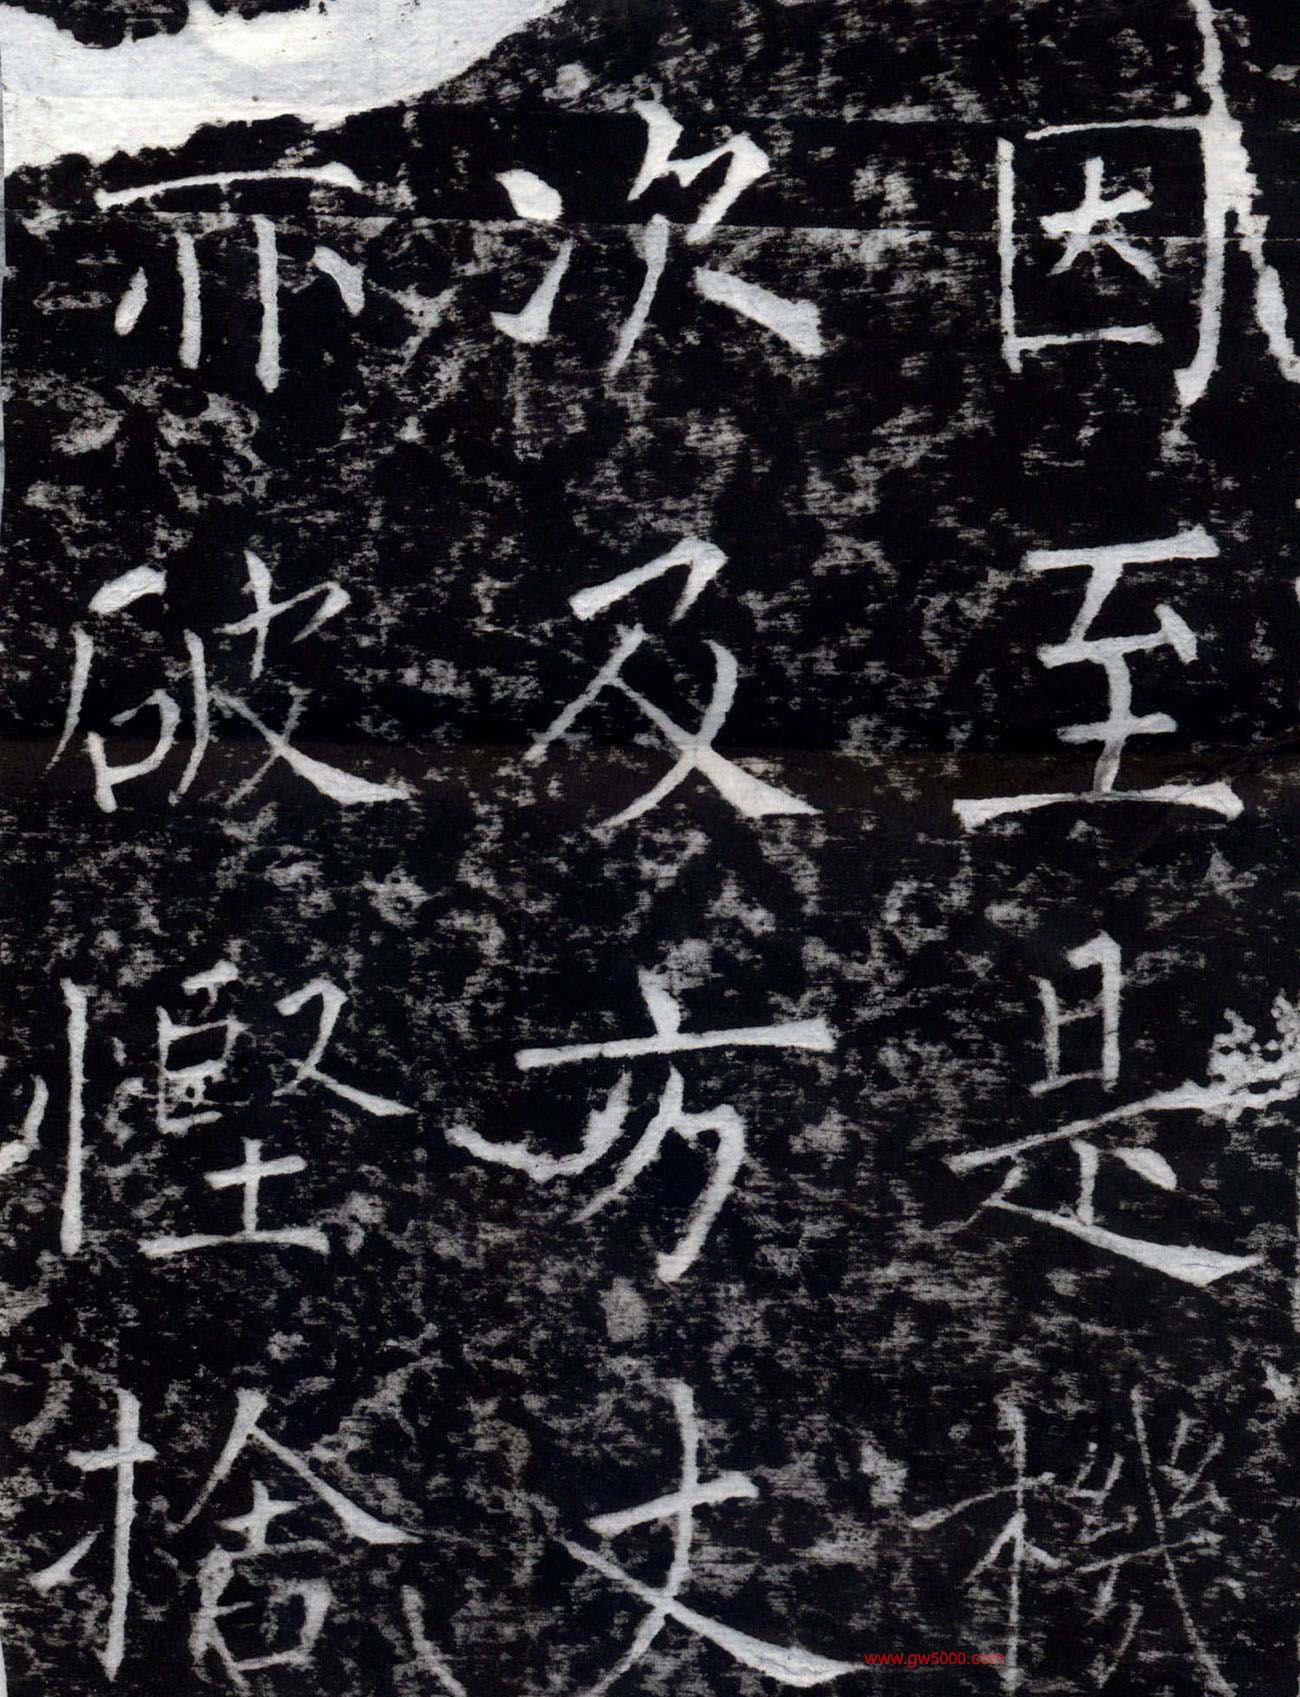 因至是機
次及方丈
亦破慳捨
www.gw5000.com